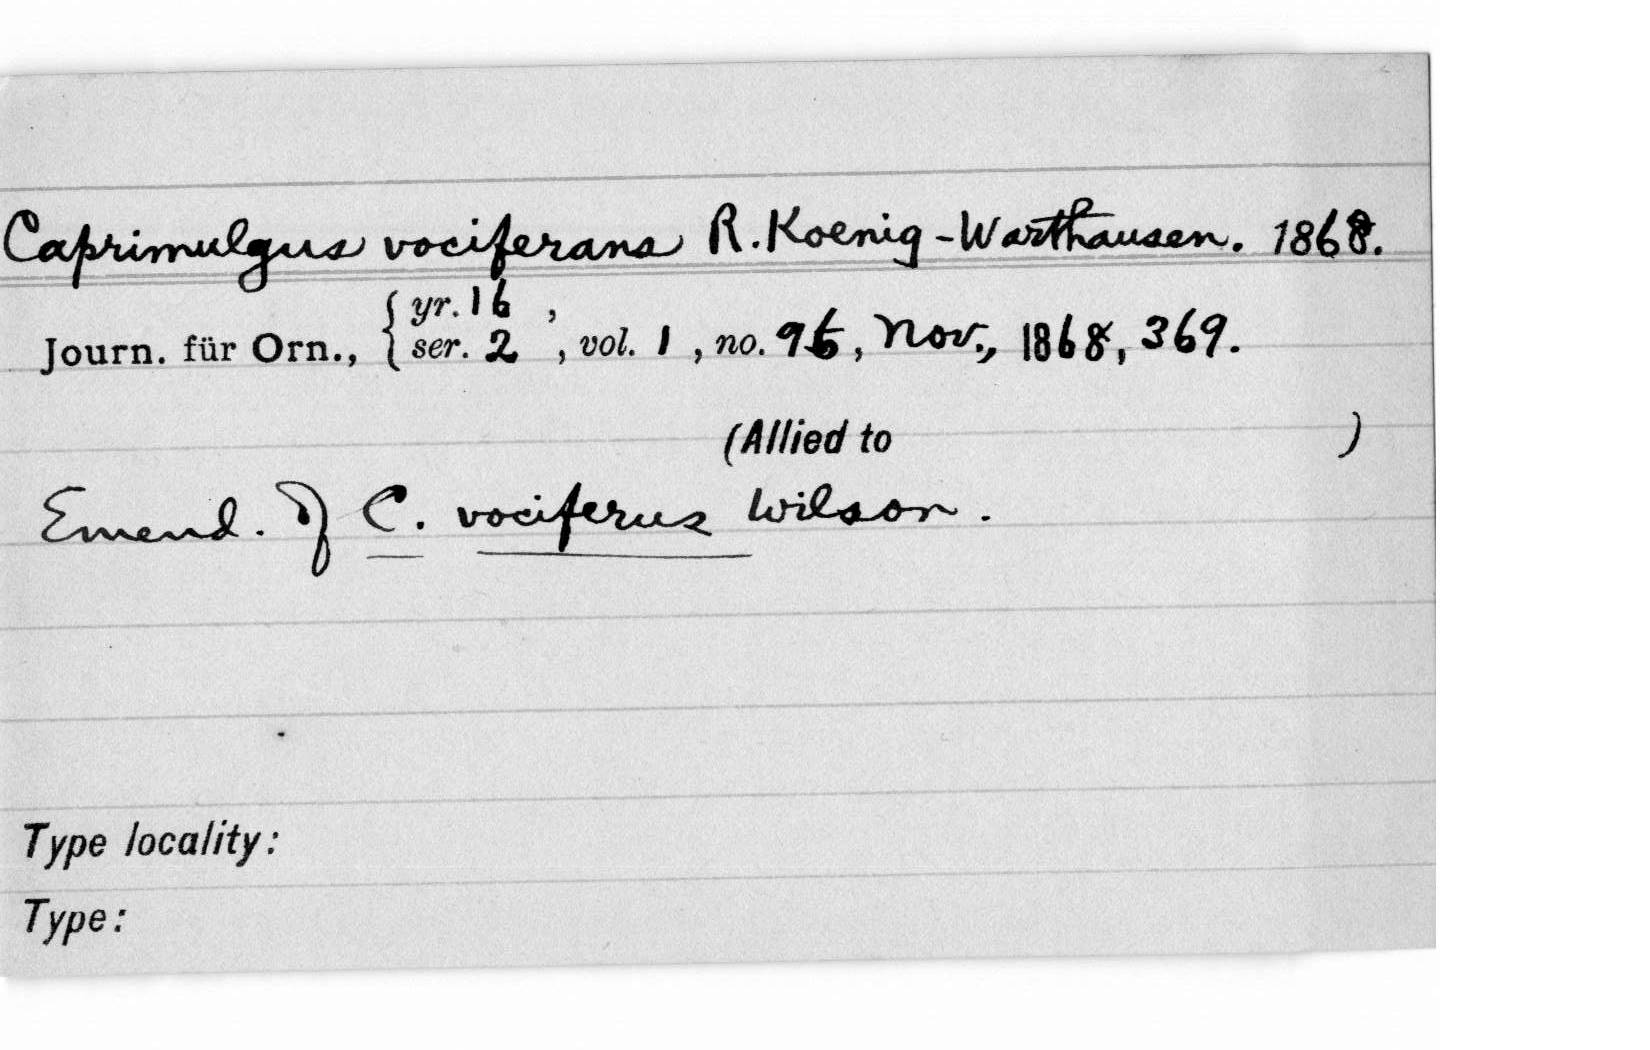 Caprimulgus vociferans R. Koenig-Warthausen. 1868.
yr. 16 ,
Journ. für Orn., { ser. 2 , vol. 1 , no. 96, Nov., 1868, 369.
(Allied to )
Emend. of C. vociferus Wilson.
Type locality:
Type: